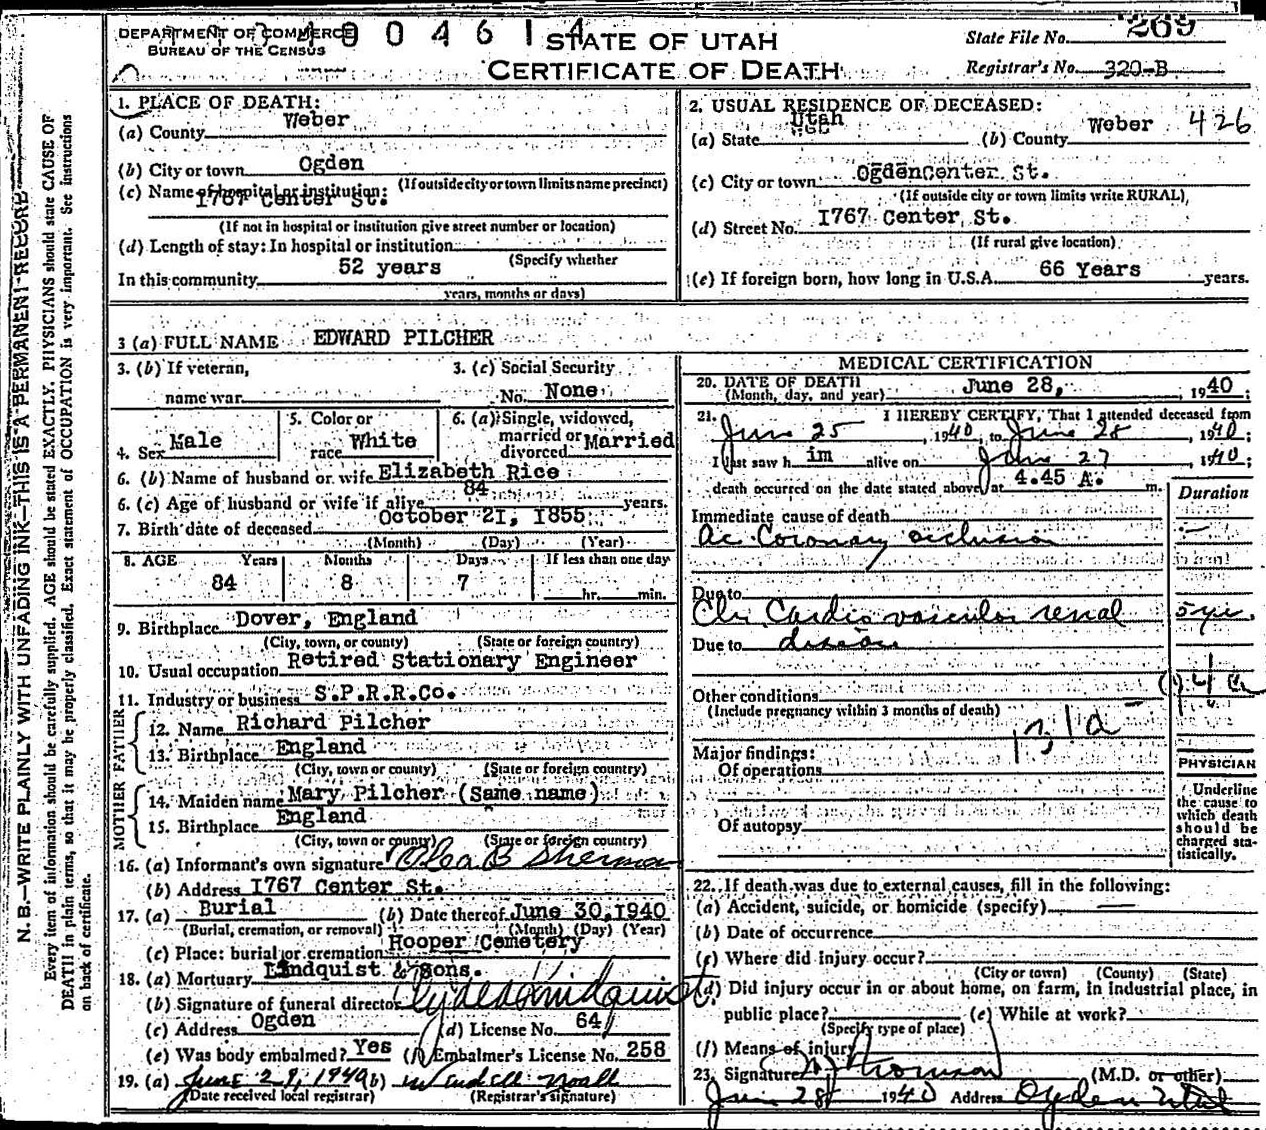 DEPARTMENT OF COMMERCE
BUREAU OF THE CENSUS
4 0 0 4 6 1 4
STATE OF UTAH
CERTIFICATE OF DEATH
State File No. 269
Registrar's No. 320-B
N. B.—WRITE PLAINLY WITH UNFADING INK—THIS IS A PERMANENT RECORD
Every item of information should be carefully supplied. AGE should be stated EXACTLY. PHYSICIANS should state CAUSE OF
DEATH in plain terms, so that it may be properly classified. Exact statement of OCCUPATION is very important. See instructions
on back of certificate.
1. PLACE OF DEATH:
(a) County Weber
(b) City or town Ogden
(If outside city or town limits name precinct)
(c) Name of hospital or institution:
I767 Center St.
(If not in hospital or institution give street number or location)
(d) Length of stay: In hospital or institution
(Specify whether
In this community 52 years
years, months or days)
2. USUAL RESIDENCE OF DECEASED:
(a) State Utah (b) County Weber 426
(c) City or town OgdenCenter St.
(If outside city or town limits write RURAL)
(d) Street No. I767 Center St.
(If rural give location)
(e) If foreign born, how long in U.S.A. 66 Years years.
3 (a) FULL NAME EDWARD PILCHER
3. (b) If veteran,
name war
3. (c) Social Security
No. None
4. Sex Male
5. Color or
race White
6. (a) Single, widowed,
married or
divorced Married
6. (b) Name of husband or wife Elizabeth Rice
6. (c) Age of husband or wife if alive 84 years.
7. Birth date of deceased October 2I, I855
(Month) (Day) (Year)
8. AGE Years Months Days If less than one day
84 8 7 hr. min.
9. Birthplace Dover, England
(City, town, or county) (State or foreign country)
10. Usual occupation Retired Stationary Engineer
11. Industry or business S.P.R.R.Co.
FATHER
12. Name Richard Pilcher
13. Birthplace England
(City, town or county) (State or foreign country)
MOTHER
14. Maiden name Mary Pilcher (Same name)
15. Birthplace England
(City, town or county) (State or foreign country)
16. (a) Informant's own signature B Sherman
(b) Address I767 Center St.
17. (a) Burial (b) Date thereof June 30,I940
(Burial, cremation, or removal) (Month) (Day) (Year)
(c) Place: burial or cremation Hooper Cemetery
18. (a) Mortuary Lindquist & Sons.
(b) Signature of funeral director Clyde Lindquist
(c) Address Ogden (d) License No. 64
(e) Was body embalmed? Yes (f) Embalmer's License No. 258
19. (a) June 29, 1940 (b) Wendell Noall
(Date received local registrar) (Registrar's signature)
MEDICAL CERTIFICATION
20. DATE OF DEATH
(Month, day, and year) June 28, 1940;
21. I HEREBY CERTIFY, That I attended deceased from
June 25, 1940, to June 28, 1940;
I last saw h im alive on June 27, 1940;
death occurred on the date stated above, at 4.45 A. m.
Duration
Immediate cause of death
Ac Coronary occlusion
Due to
Chr Cardio vascular renal 5 yr.
Due to disease
Other conditions
(Include pregnancy within 3 months of death)
Major findings:
Of operations
Of autopsy
PHYSICIAN
Underline
the cause to
which death
should be
charged sta-
tistically.
22. If death was due to external causes, fill in the following:
(a) Accident, suicide, or homicide (specify) —
(b) Date of occurrence
(c) Where did injury occur?
(City or town) (County) (State)
(d) Did injury occur in or about home, on farm, in industrial place, in
public place? (e) While at work?
(Specify type of place)
(f) Means of injury
23. Signature Thomson (M.D. or other)
June 28 1940 Address Ogden Utah